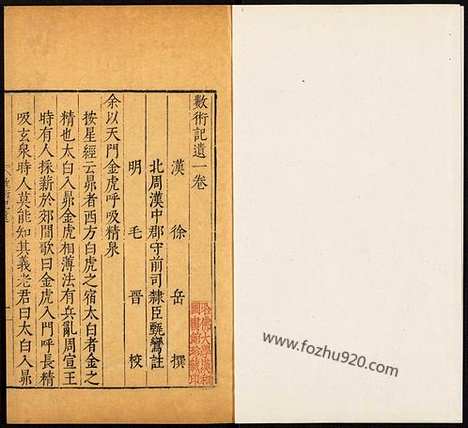 數術記遺一卷
漢徐岳撰
北周漢中郡守前司隸臣甄鸞註
明毛晉校
余以天門金虎呼吸精泉
按星經云昴者西方白虎之宿太白者金之
精也太白入昴金虎相薄法有兵亂周宣王
時有人採薪於郊間歌曰金虎入門呼長精
吸玄泉時人莫能知其義老君曰太白入昴
www.fozhu920.com